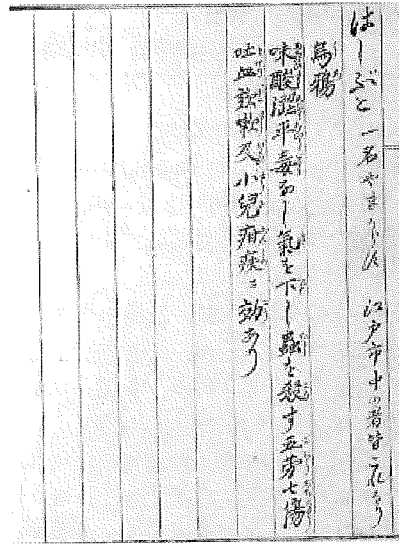 はしぶと 一名やまからす 江戸市中の者皆これなり
烏鴉
味酸澀平毒なし氣を下し蟲を殺す五勞七傷
吐血欬嗽及小兒疳疾ニ効あり